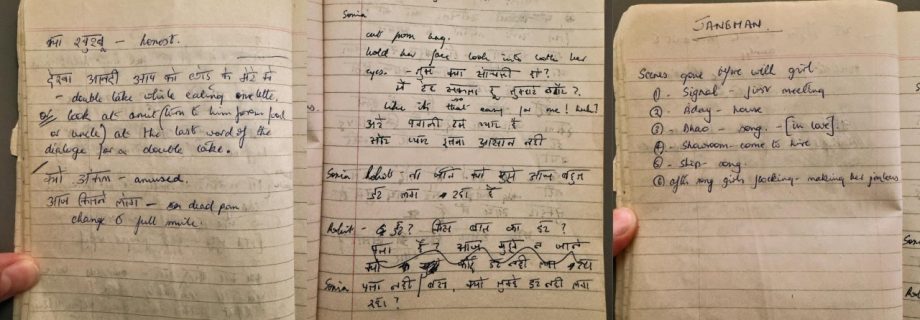 क्या खुशबू - honest.
देखा आनदी आप को छोड के मेरे मे
- double take while eating omelette.
look at amit (turn to him form food
or uncle) at the last word of the
dialoge for a double take.
- amused.
आज कितने लोग - dead pan
change to full smile.
Sonia
cut from hug.
hold her face look into
eyes. - तुम क्या सोचती हो?
मै रह सकता हू तुम्हारे बगैर?
like its that easy for me! huh?
अरे पगली इसे प्यार है
और प्यार इतना आसान नही
Sonia Rohit मुझे आज बहुत
डर लग रहा है
Rohit - डर? किस बात का डर?
पता है? आज मुझे न जाने
क्यो कोई डर नही लग रहा
Sonia पता नही बस, क्यो तुम्हे डर नही लग
रहा?
JANEMAN.
Scenes gone before with girl
① - Signal - first meeting
② - Bday - house
③ - Dhao - song. - [in love].
④ - Showroom - come to hire
⑤ - Ship - song.
⑥ after song girls flocking - making her jealous.